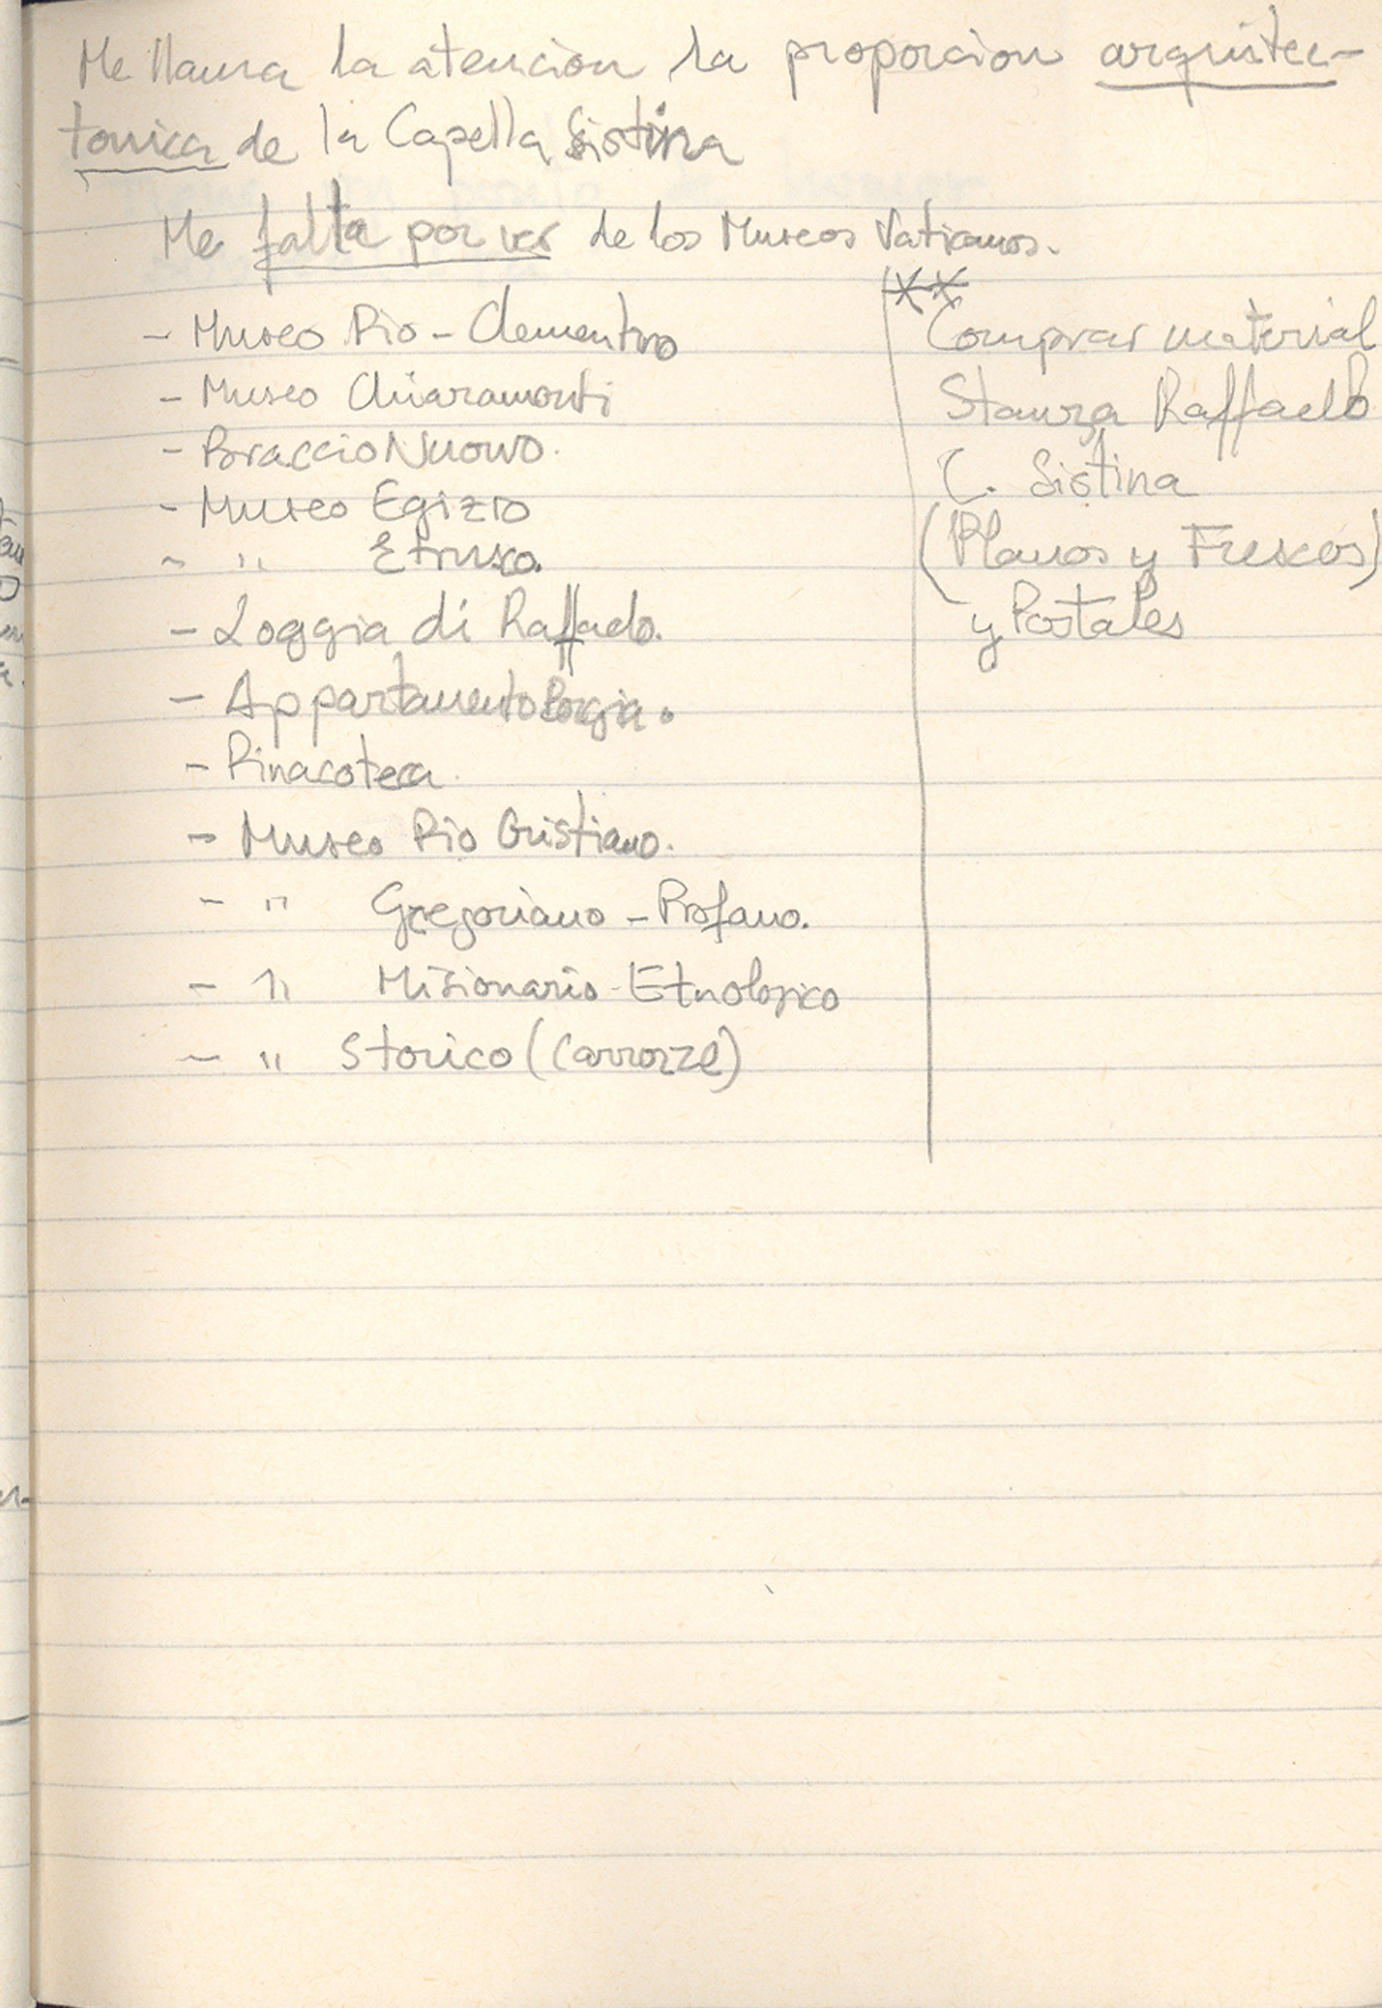 Me llama la atencion la proporcion arquitec-
tonica de la Capella Sistina
Me falta por ver de los Museos Vaticanos.
- Museo Pio - Clementino
- Museo Chiaramonti
- Braccio Nuovo.
- Museo Egizio
- " Etrusco.
- Loggia di Raffaelo.
- Appartamento Borgia.
- Pinacoteca.
- Museo Pio Cristiano.
- " Gregoriano - Profano.
- " Misionario - Etnologico
- " Storico (Carrozze)
**
Comprar material
Stanza Raffaello
C. Sistina
(Planos y Frescos)
y Postales